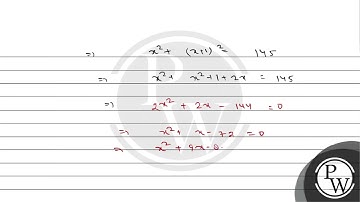 P
W
⇒ x² + (x+1)² = 145
⇒ x² + x² + 1 + 2x = 145
⇒ 2x² + 2x - 144 = 0
⇒ x² + x - 72 = 0
⇒ x² + 9x - 8